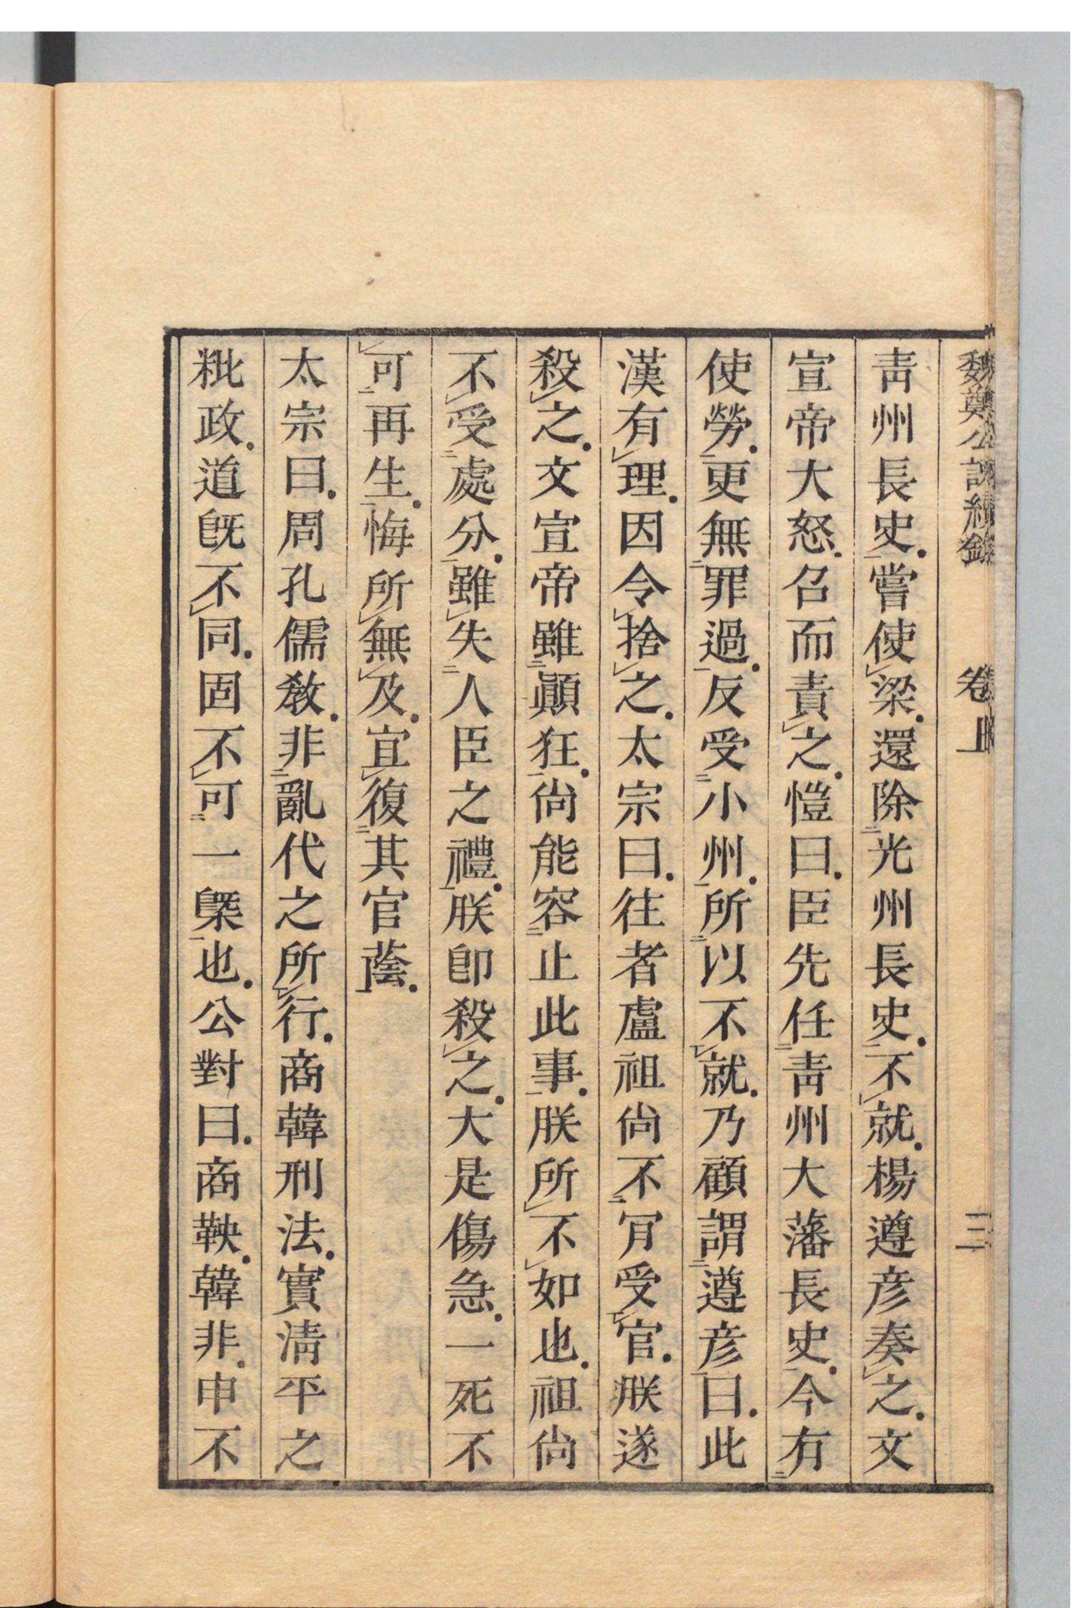 魏鄭公諫續錄 卷上 三
靑州長史嘗使梁還除光州長史不就楊遵彦奏之文
宣帝大怒召而責之愷曰臣先任靑州大藩長史今有
使勞更無罪過反受小州所以不就乃顧謂遵彦曰此
漢有理因令捨之太宗曰往者盧祖尙不肎受官朕遂
殺之文宣帝雖顚狂尙能容止此事朕所不如也祖尙
不受處分雖失人臣之禮朕卽殺之大是傷急一死不
可再生悔所無及宜復其官蔭
太宗曰周孔儒敎非亂代之所行商韓刑法實淸平之
粃政道旣不同固不可一槩也公對曰商鞅韓非申不